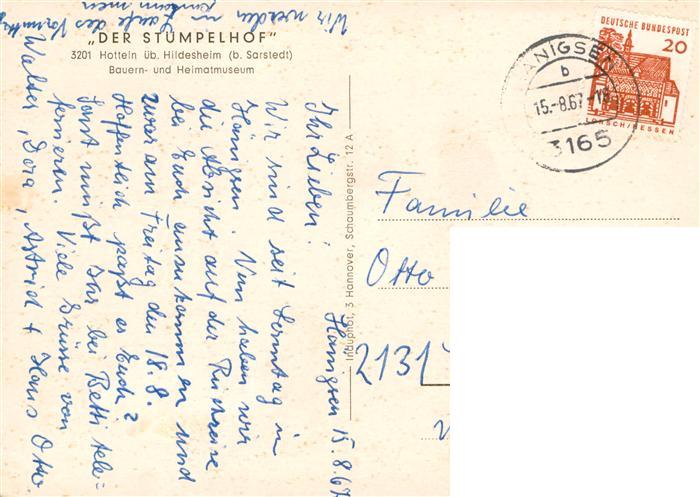 „DER STÜMPELHOF"
3201 Hotteln üb. Hildesheim (b. Sarstedt)
Bauern- und Heimatmuseum
Hänigsen 15.8.67
Ihr Lieben!
Wir sind seit Sonntag in
Hänigsen. Nun haben wir
die Absicht auf der Rückreise
bei Euch einzukommen und
zwar am Freitag den 18.8.
Hoffentlich paßt es Euch?
Sonst müßt Ihr bei Betti tele-
fonieren. Viele Grüsse von
Walter, Dora, Astrid + Hans Otto
Wir werden im Laufe des Vormittag
ankommen
Induphot, 3 Hannover, Schaumbergstr. 12 A
DEUTSCHE BUNDESPOST
20
LORSCH/HESSEN
HÄNIGSEN
b
15.-8.67-18
3165
Familie
Otto
2131